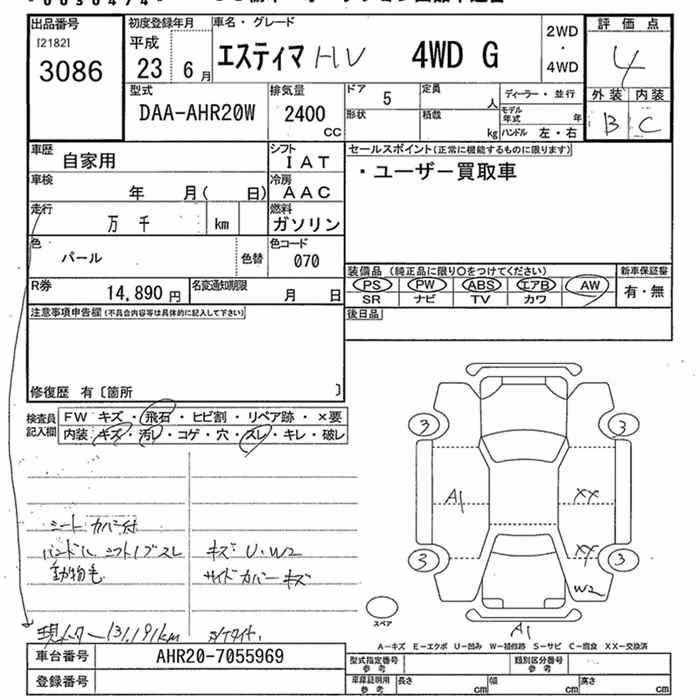 出品番号
[2182]
3086
初度登録年月
平成
23 6月
車名・グレード
エスティマ HV 4WD G
2WD
・
4WD
評価点
4
外装 内装
B C
型式
DAA-AHR20W
排気量
2400
CC
ドア
5
定員
人
ディーラー・並行
形状
積載
kg
モデル年式
年
ハンドル 左・右
車歴
自家用
シフト
IAT
車検
年 月( 日)
冷房
AAC
走行
万 千 km
燃料
ガソリン
色
パール
色替
色コード
070
R券
14,890 円
名変通知期限
月 日
セールスポイント(正常に機能するものに限ります)
・ユーザー買取車
装備品 (純正品に限り○をつけてください)
PS PW ABS エアB AW
SR ナビ TV カワ
新車保証書
有・無
後日品
注意事項申告欄(不具合内容等は具体的に記入して下さい)
修復歴 有〔箇所 〕
検査員
記入欄
FW キズ・飛石・ヒビ割・リペア跡・×要
内装・キズ・汚レ・コゲ・穴・スレ・キレ・破レ
シートカバー付
ハンドル シフトノブスレ
動物毛
キズ・U・W2
サイドカバーキズ
現メーター131,191km
3 3
A1 XX
3 XX 3
W2
A1
スペア
A-キズ E-エクボ U-凹み W-補修跡 S-サビ C-腐食 XX-交換済
車台番号
AHR20-7055969
登録番号
型式指定番号
参考
類別区分番号
参考
車庫証明用
参考
長さ cm
幅 cm
高さ cm